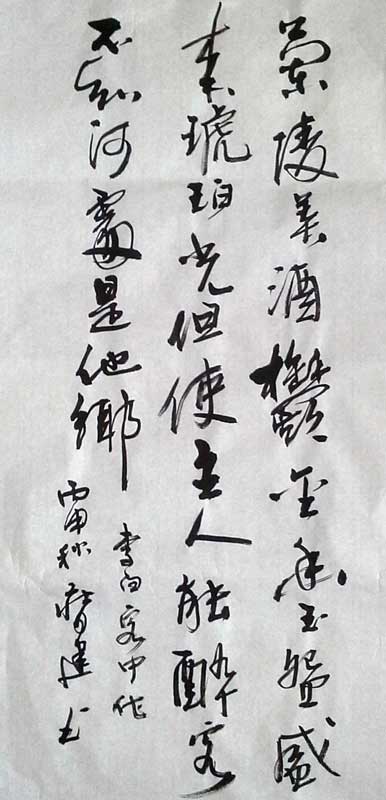 蘭陵美酒鬱金香玉盌盛
来琥珀光但使主人能醉客
不知河處是他鄉
李白客中作
丙申秋建书